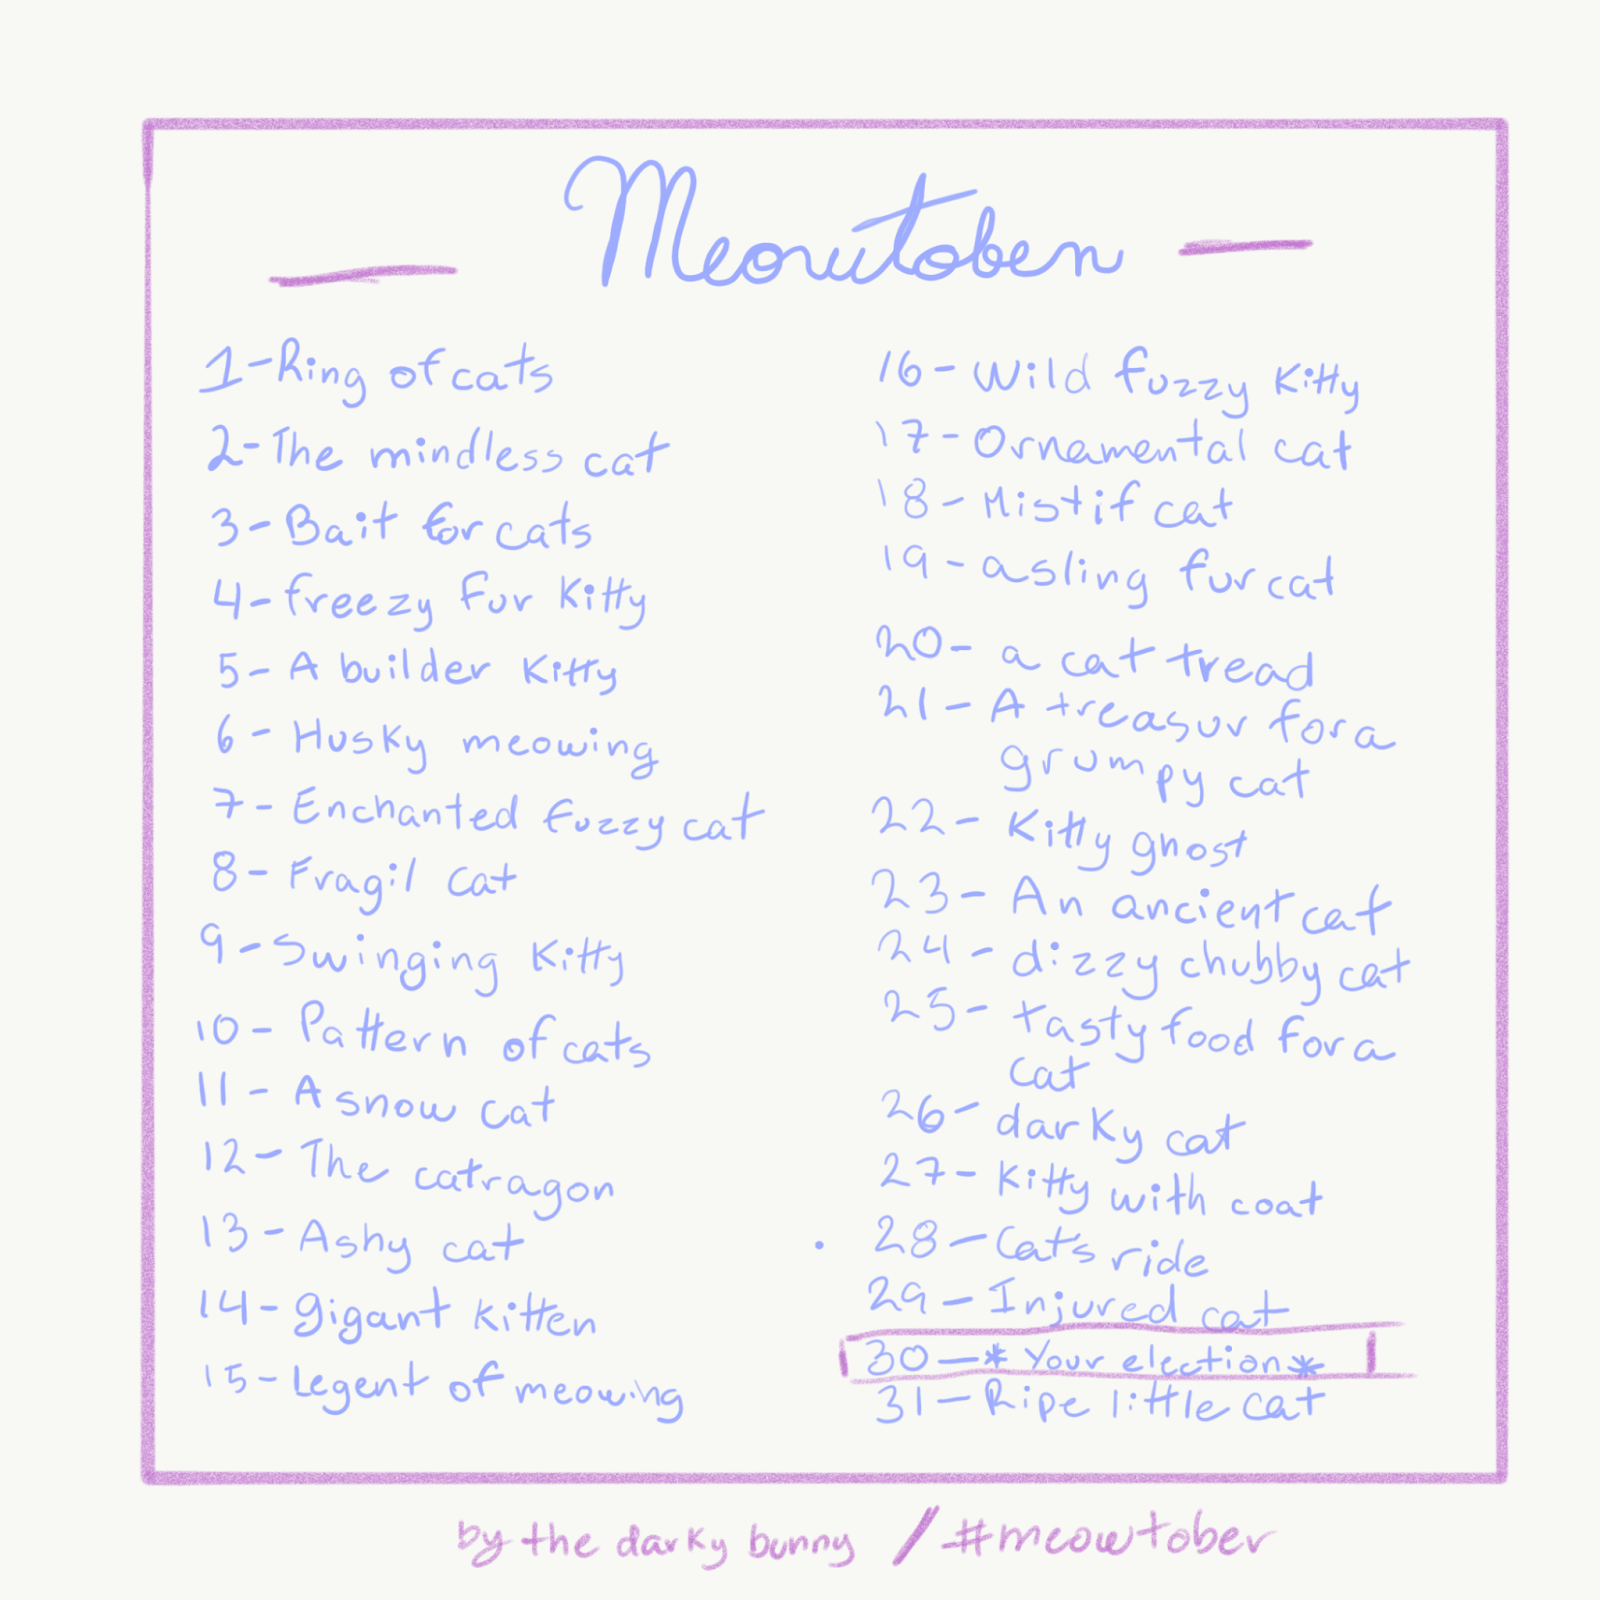 Meowtober
1-Ring of cats
2-The mindless cat
3-Bait for cats
4-freezy Fur Kitty
5-A builder Kitty
6-Husky meowing
7-Enchanted fuzzy cat
8-Fragil cat
9-Swinging Kitty
10-Pattern of cats
11-A snow cat
12-The catragon
13-Ashy cat
14-gigant kitten
15-Legent of meowing
16-Wild fuzzy Kitty
17-Ornamental cat
18-Mistif cat
19-asling fur cat
20-a cat tread
21-A treasur for a
grumpy cat
22-Kitty ghost
23-An ancient cat
24-dizzy chubby cat
25-tasty food for a
cat
26-darky cat
27-Kitty with coat
28-Cats ride
29-Injured cat
30-* Your election*
31-Ripe little cat
by the darky bunny / #meowtober